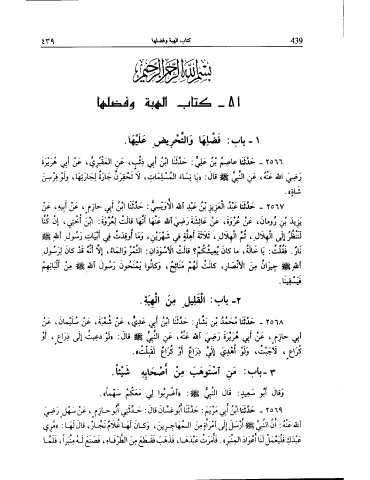 439 كتاب الهبة وفضلها ٤٣٩
بسم الله الرحمن الرحيم
٥١ـ كتاب الهبة وفضلها
١ ـ باب: فَضْلِهَا وَالتَّحْرِيضِ عَلَيْهَا.
٢٥٦٦ ـ حَدَّثَنَا عاصِمُ بْنُ عَلِيٍّ: حَدَّثَنَا ابْنُ أَبِي ذِئْبٍ، عَنِ المَقْبُرِيِّ، عَنْ أَبِي هُرَيْرَةَ
رَضِيَ اللهُ عَنْهُ، عَنِ النَّبِيِّ ﷺ قالَ: «يَا نِسَاءَ المُسْلِمَاتِ، لَا تَحْقِرَنَّ جَارَةٌ لِجَارَتِهَا، وَلَوْ فِرْسِنَ
شَاةٍ».
٢٥٦٧ ـ حَدَّثَنَا عَبْدُ الْعَزِيزِ بْنُ عَبْدِ اللهِ الأُوَيْسِيُّ: حَدَّثَنَا ابْنُ أَبِي حازِمٍ، عَنْ أَبِيهِ، عَنْ
يَزِيدَ بْنِ رُومانَ، عَنْ عُرْوَةَ، عَنْ عائِشَةَ رَضِيَ اللهُ عَنْهَا أَنَّهَا قالَتْ لِعُرْوَةَ: ابْنَ أُخْتِي، إِنْ كُنَّا
لَنَنْظُرُ إِلَى الْهِلَالِ، ثُمَّ الْهِلَالِ، ثَلَاثَةَ أَهِلَّةٍ فِي شَهْرَيْنِ، وَمَا أُوقِدَتْ فِي أَبْيَاتِ رَسُولِ اللهِ ﷺ
نَارٌ. فَقُلْتُ: يَا خَالَةُ، ما كانَ يُعِيشُكُمْ؟ قالَتْ: الْأَسْوَدَانِ: التَّمْرُ وَالمَاءُ، إِلَّا أَنَّهُ قَدْ كانَ لِرَسُولِ
اللهِ ﷺ جِيرَانٌ مِنَ الْأَنْصَارِ، كانَتْ لَهُمْ مَنَائِحُ، وَكانُوا يَمْنَحُونَ رَسُولَ اللهِ ﷺ مِنْ أَلْبَانِهِمْ
فَيَسْقِينَا.
٢ـ باب: الْقَلِيلِ مِنَ الْهِبَةِ.
٢٥٦٨ ـ حَدَّثَنَا مُحَمَّدُ بْنُ بَشَّارٍ: حَدَّثَنَا ابْنُ أَبِي عَدِيٍّ، عَنْ شُعْبَةَ، عَنْ سُلَيْمَانَ، عَنْ
أَبِي حازِمٍ، عَنْ أَبِي هُرَيْرَةَ رَضِيَ اللهُ عَنْهُ، عَنِ النَّبِيِّ ﷺ قالَ: «لَوْ دُعِيتُ إِلَى ذِرَاعٍ، أَوْ
كُرَاعٍ، لَأَجَبْتُ، وَلَوْ أُهْدِيَ إِلَيَّ ذِرَاعٌ أَوْ كُرَاعٌ لَقَبِلْتُ».
٣ ـ باب: مَنِ اسْتَوْهَبَ مِنْ أَصْحَابِهِ شَيْئًا.
وَقالَ أَبُو سَعِيدٍ: قالَ النَّبِيُّ ﷺ: «اضْرِبُوا لِي مَعَكُمْ سَهْمًا».
٢٥٦٩ ـ حَدَّثَنَا ابْنُ أَبِي مَرْيَمَ: حَدَّثَنَا أَبُو غَسَّانَ قالَ: حَدَّثَنِي أَبُو حازِمٍ، عَنْ سَهْلٍ رَضِيَ
اللهُ عَنْهُ: أَنَّ النَّبِيَّ ﷺ أَرْسَلَ إِلَى امْرَأَةٍ مِنَ المُهَاجِرِينَ، وَكانَ لَهَا غُلَامٌ نَجَّارٌ، قالَ لَهَا: «مُرِي
عَبْدَكِ فَلْيَعْمَلْ لَنَا أَعْوَادَ الْمِنْبَرِ». فَأَمَرَتْ عَبْدَهَا، فَذَهَبَ فَقَطَعَ مِنَ الطَّرْفاءِ، فَصَنَعَ لَهُ مِنْبَرًا، فَلَمَّا